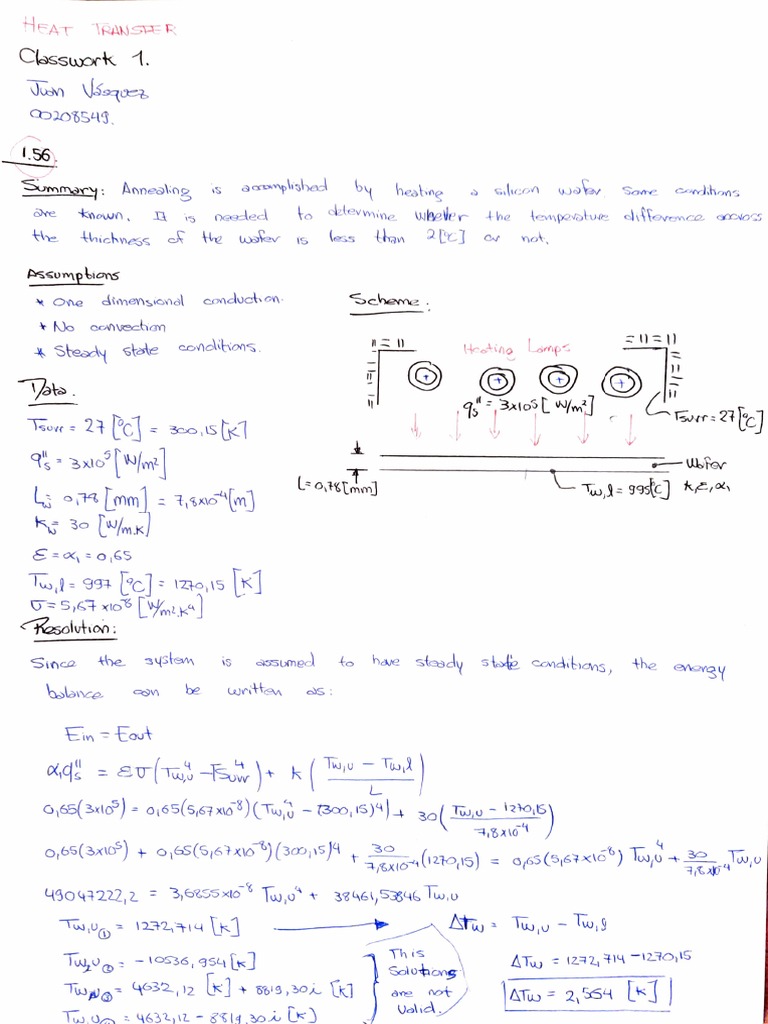 HEAT TRANSFER
Classwork 1.
Juan Vásquez
00208549.
1.56
Summary: Annealing is accomplished by heating a silicon wafer. Some conditions
are known. It is needed to determine whether the temperature difference accross
the thickness of the wafer is less than 2[°C] or not.
Assumptions
* One dimensional conduction.
* No convection
* Steady state conditions.
Scheme:
Heating Lamps
q"s = 3x10⁵ [W/m²]
Tsurr = 27[°C]
L = 0,78[mm]
Wafer
Tw,l = 995[°C]
k, ε, α₁
Data.
Tsurr = 27 [°C] = 300,15 [K]
q"s = 3x10⁵ [W/m²]
Lw = 0,78 [mm] = 7,8x10⁻⁴ [m]
kw = 30 [W/m.K]
ε = α₁ = 0,65
Tw,l = 997 [°C] = 1270,15 [K]
σ = 5,67x10⁻⁸ [W/m².K⁴]
Resolution:
Since the system is assumed to have steady state conditions, the energy
balance can be written as:
Ein = Eout
α₁q"s = εσ(Tw,u⁴ - Tsurr⁴) + k (Tw,u - Tw,l / L)
0,65(3x10⁵) = 0,65(5,67x10⁻⁸)(Tw,u⁴ - (300,15)⁴) + 30(Tw,u - 1270,15 / 7,8x10⁻⁴)
0,65(3x10⁵) + 0,65(5,67x10⁻⁸)(300,15)⁴ + 30/7,8x10⁻⁴ (1270,15) = 0,65(5,67x10⁻⁸) Tw,u⁴ + 30/7,8x10⁻⁴ Tw,u
49047222,2 = 3,6855x10⁻⁸ Tw,u⁴ + 38461,53846 Tw,u
Tw,u① = 1272,714 [K]
Tw,u② = -10536,954 [K]
Tw,u③ = 4632,12 [K] + 8819,30i [K]
Tw,u = 4632,12 - 8819,30i [K]
This
Solutions
are not
valid.
ΔTw = Tw,u - Tw,l
ΔTw = 1272,714 - 1270,15
ΔTw = 2,564 [K]